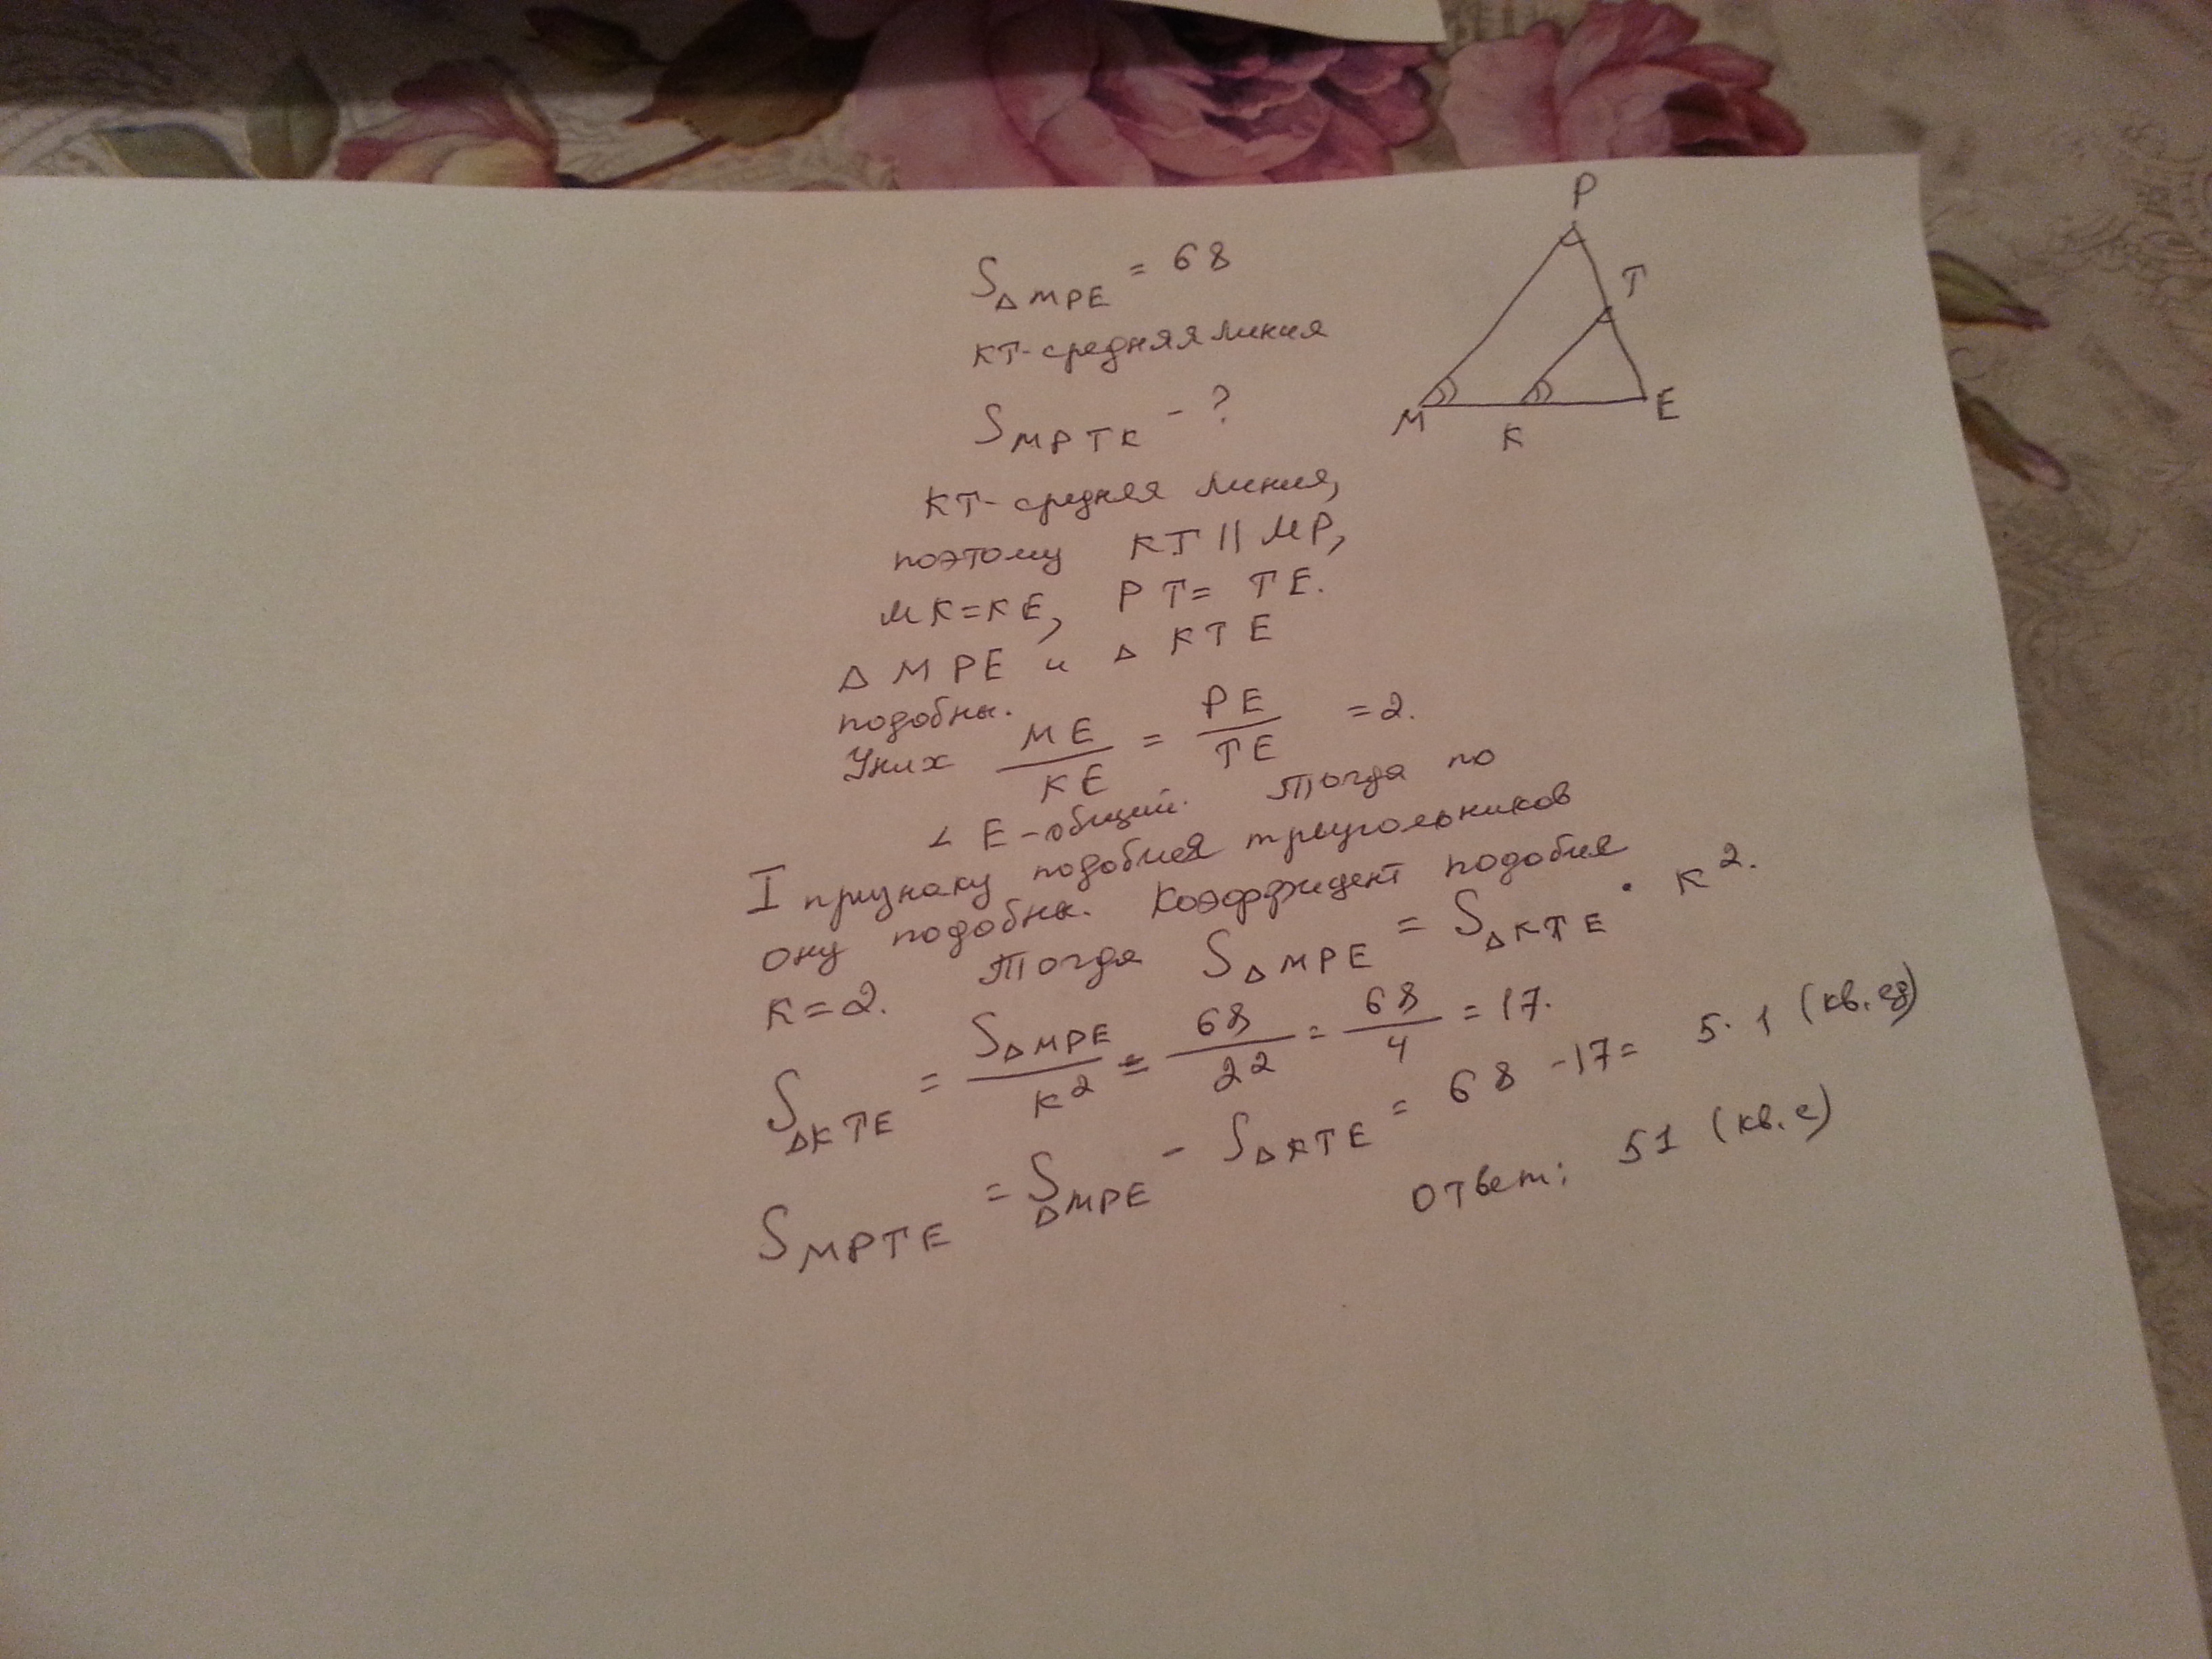 S△MPE = 68
KT-средняя линия
SMPTK - ?
KT-средняя линия,
поэтому KT || MP,
MK=KE, PT= TE.
△ MPE и △ KTE
подобны.
У них ME/KE = PE/TE =2.
∠ E-общий. Тогда по
I признаку подобия треугольников
ону подобны. Коэффицент подобия
K=2. Тогда S△MPE = S△KTE · K².
S△KTE = S△MPE/K² = 68/22 = 68/4 = 17.
SMPTE = S△MPE - S△KTE = 68 -17= 5·1 (кв. ед)
Ответ: 51 (кв. е)
P
T
M
K
E